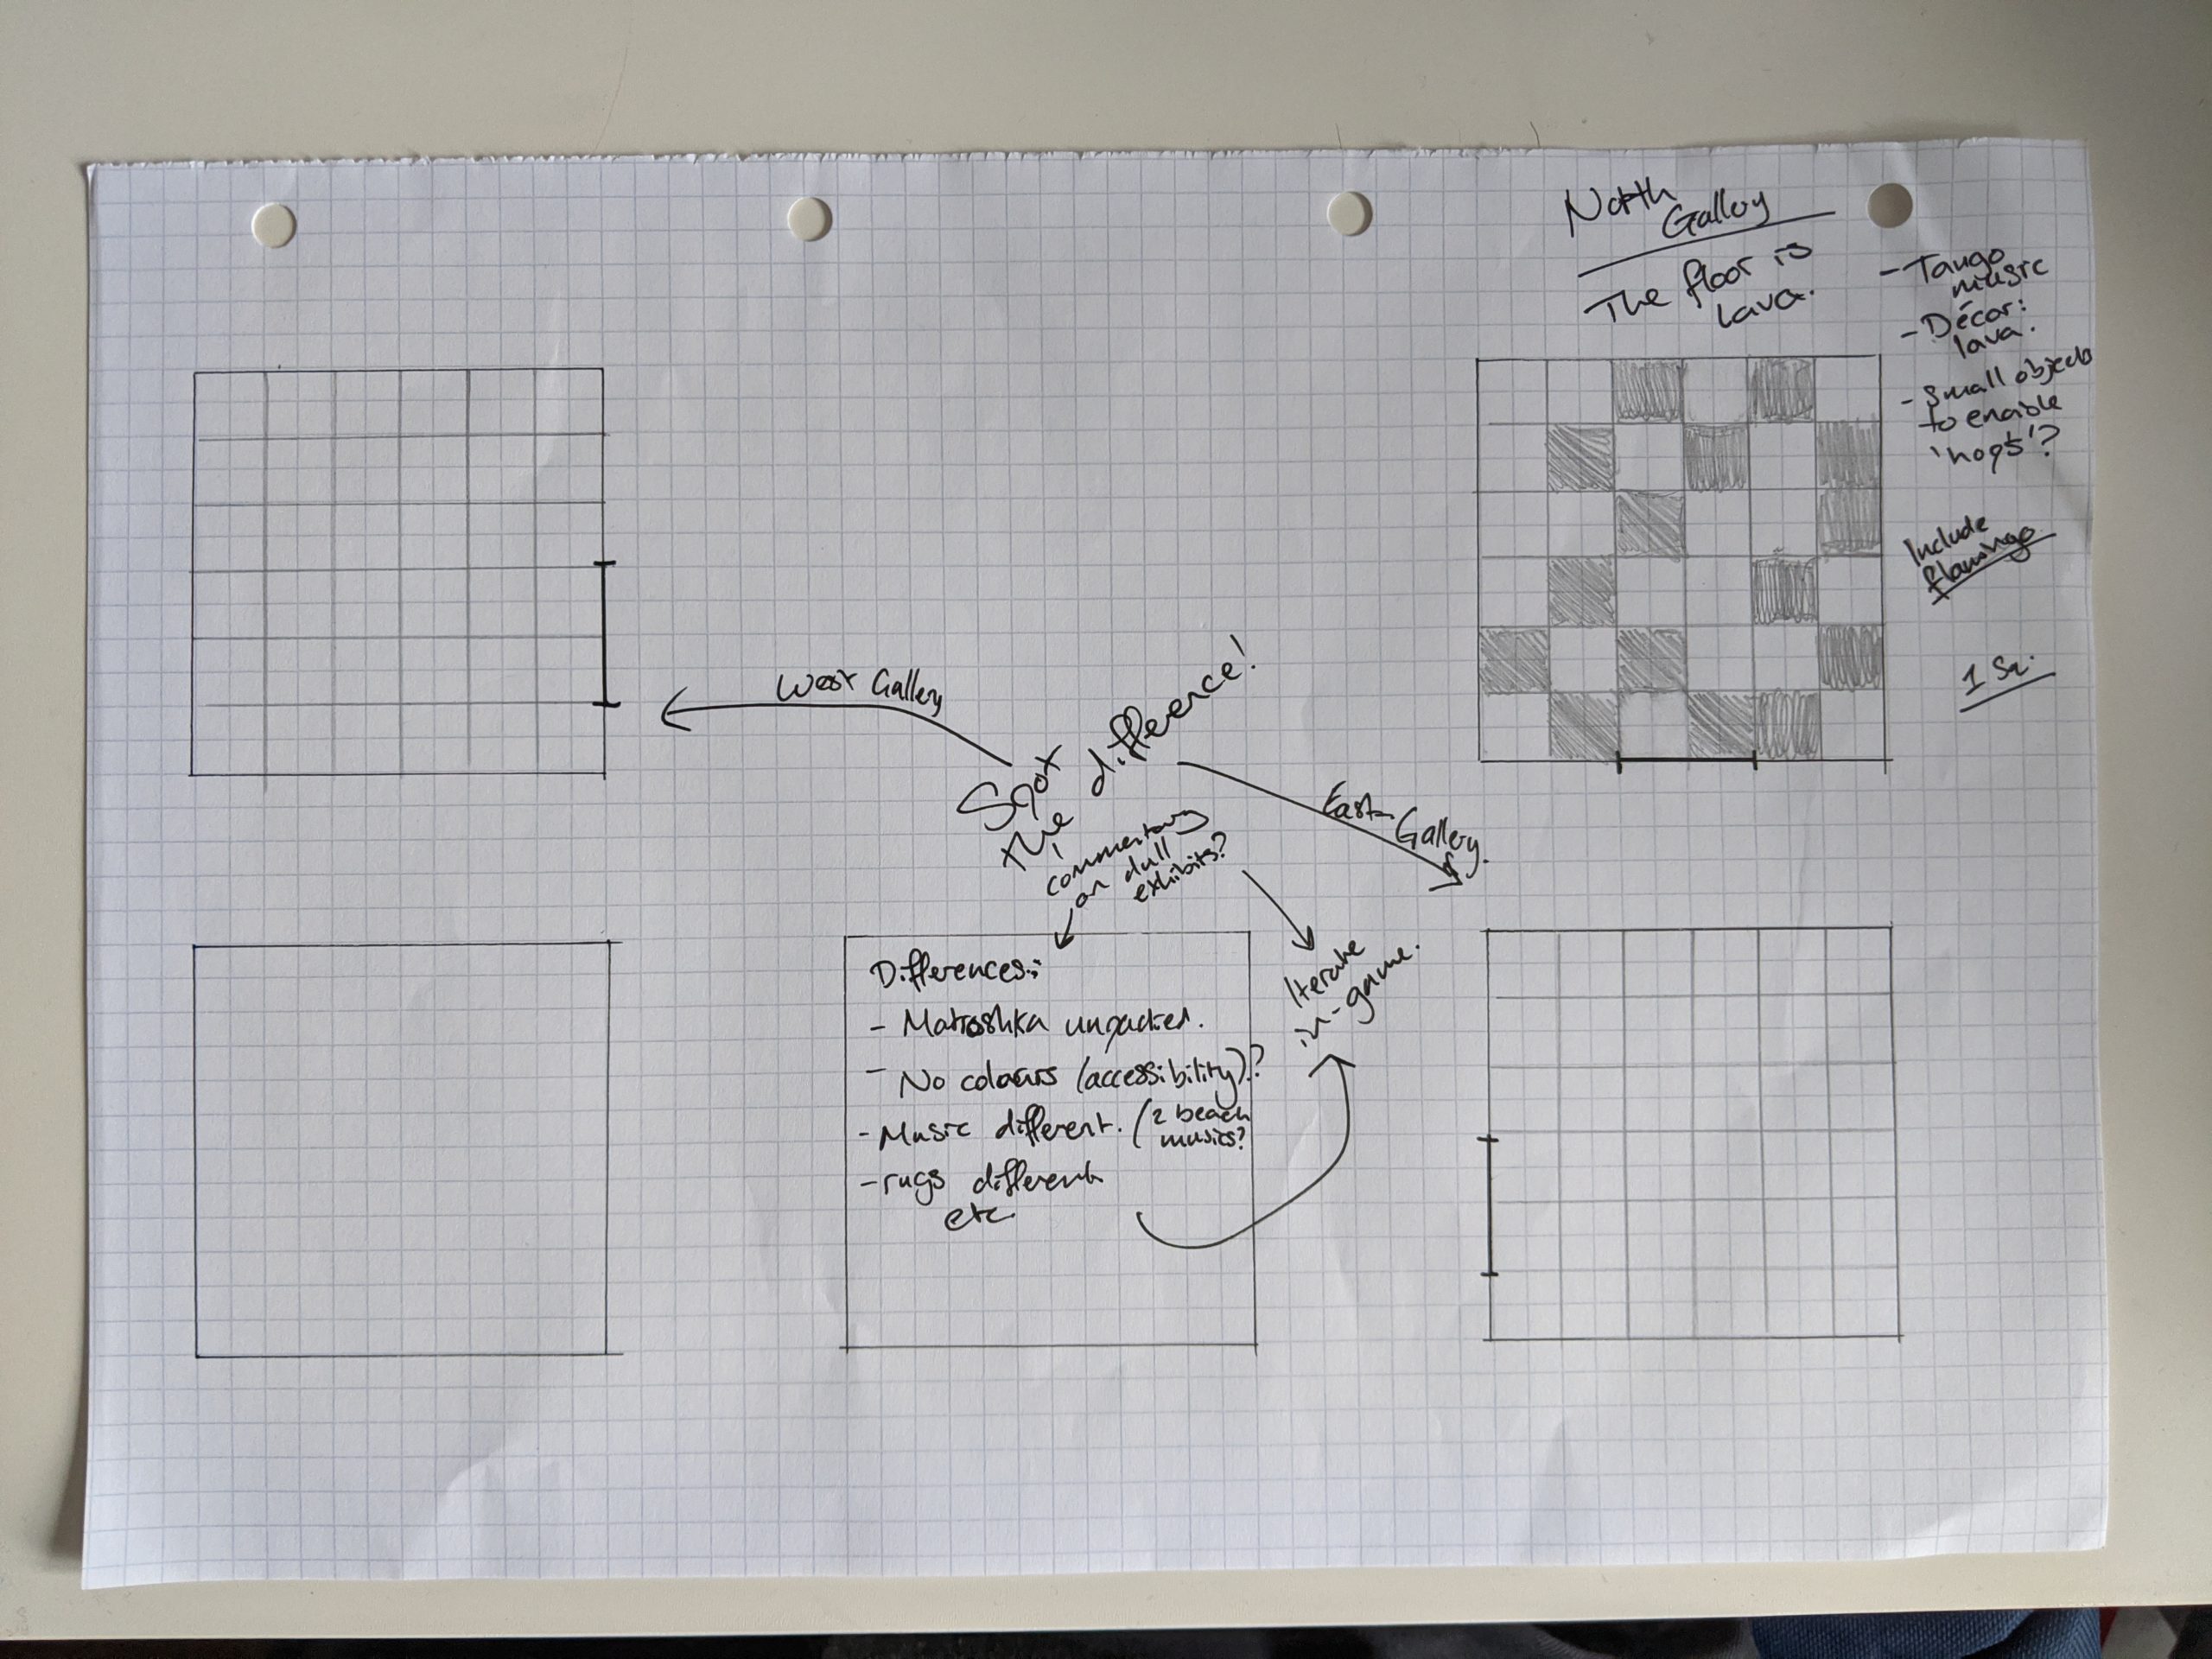 North
Gallery
The floor is
lava.
- Tango
music
- Décor:
lava.
- Small objects
to enable
'hops'?
Include
flamingo
1 Sq.
West Gallery
Spot
the difference!
commentary
on dull
exhibits?
East
Gallery.
Iterate
in-game.
Differences:
- Matroshka unpacked.
- No colours (accessibility)?
- Music different. (2 beach
musics?
- rugs different
etc